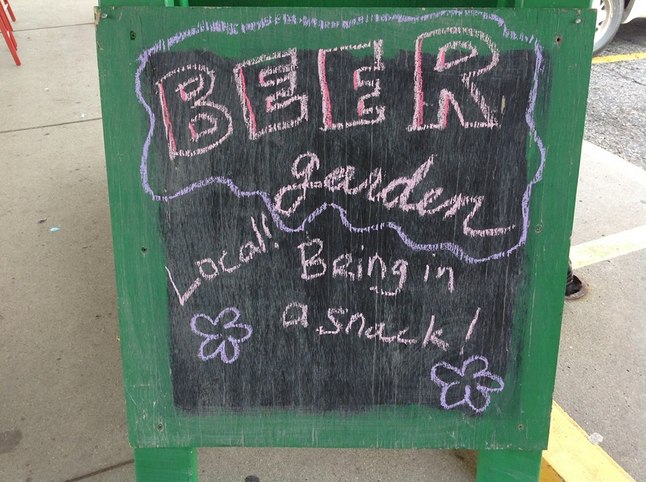 BEER
garden
Local!
Bring in
a snack!